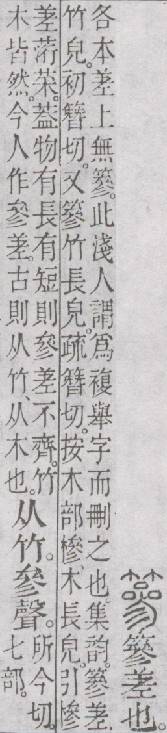 篸差也。
各本差上無篸。此淺人謂爲複舉字而刪之也。集韵。篸差
竹皃。初簪切。又篸竹長皃。疏簪切。按木部槮、木長皃。引槮
差荇菜。葢物有長有短則參差不齊。竹
木皆然。今人作參差。古則从竹、从木也。从竹。參聲。所今切。
七部。